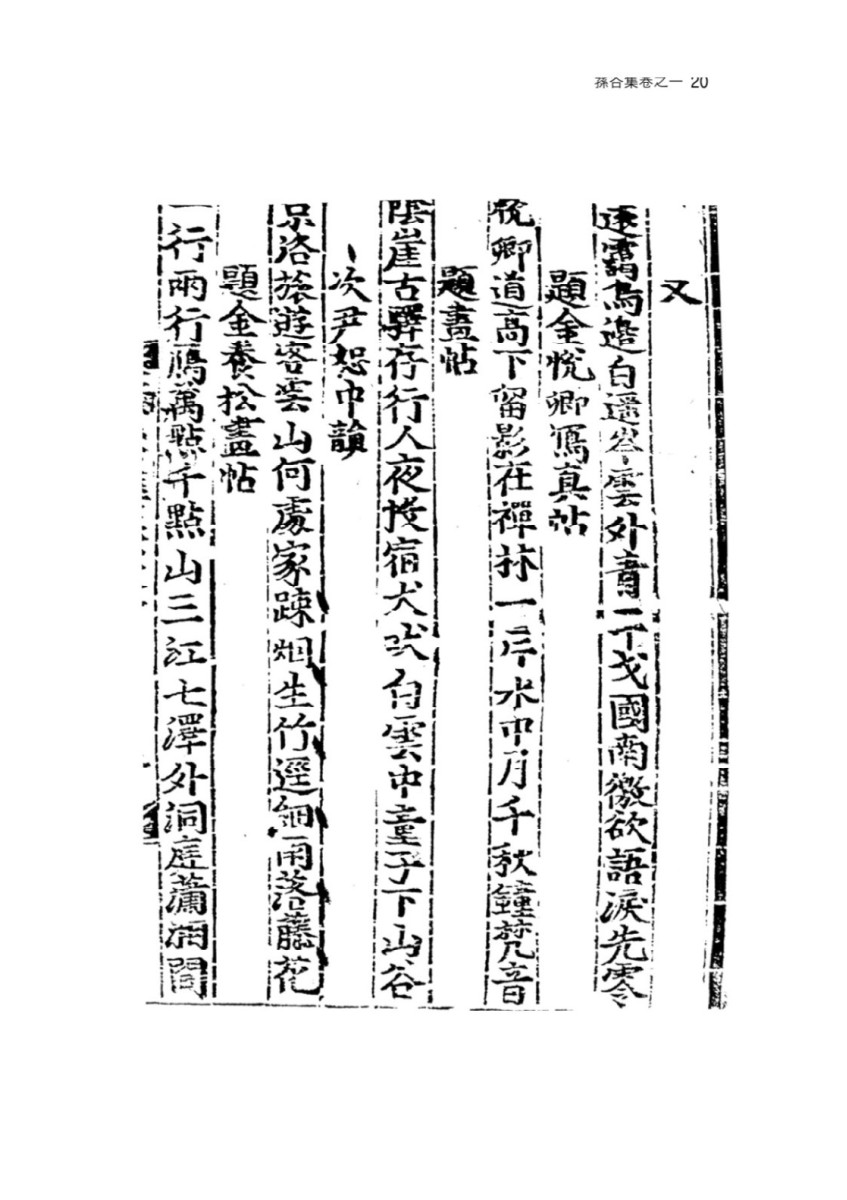 蓀谷集卷之一 20
又
遠靄鳥邊白遙岑雲外靑干戈國南徼欲語淚先零
題金悅卿寫真帖
悅卿道高下留影在禪林一片水中月千秋鐘梵音
題畫帖
陰崖古驛存行人夜投宿犬吠白雲中童子下山谷
次尹恕中韻
京洛旅遊客雲山何處家踈烟生竹逕細雨落藤花
題金養松畫帖
一行兩行鴈萬點千點山三江七澤外洞庭瀟湘間